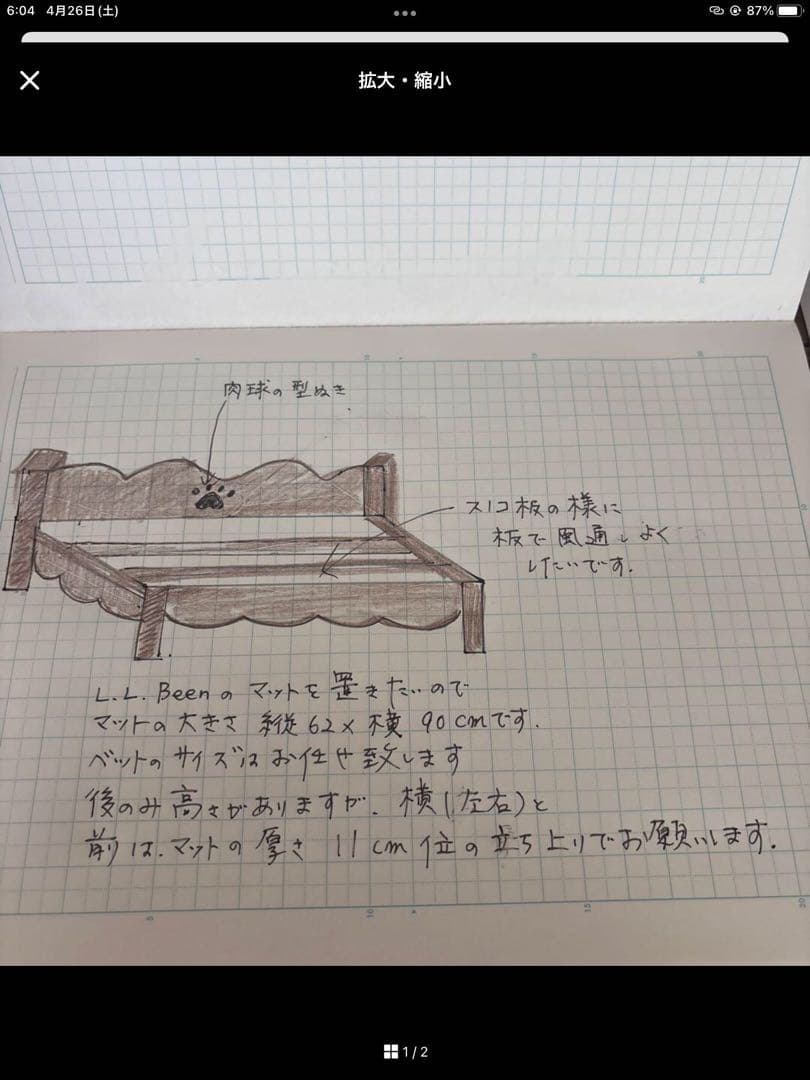 6:04 4月26日(土)
87%
拡大・縮小
肉球の型ぬき
スノコ板の様に
板で風通しよく
したいです.
L.L.Beenのマットを置きたいので
マットの大きさ 縦62×横90cmです.
ベットのサイズはお任せ致します
後のみ高さがありますが、横(左右)と
前は、マットの厚さ 11cm位の立ち上りでお願いします.
5
10
15
20
1/2